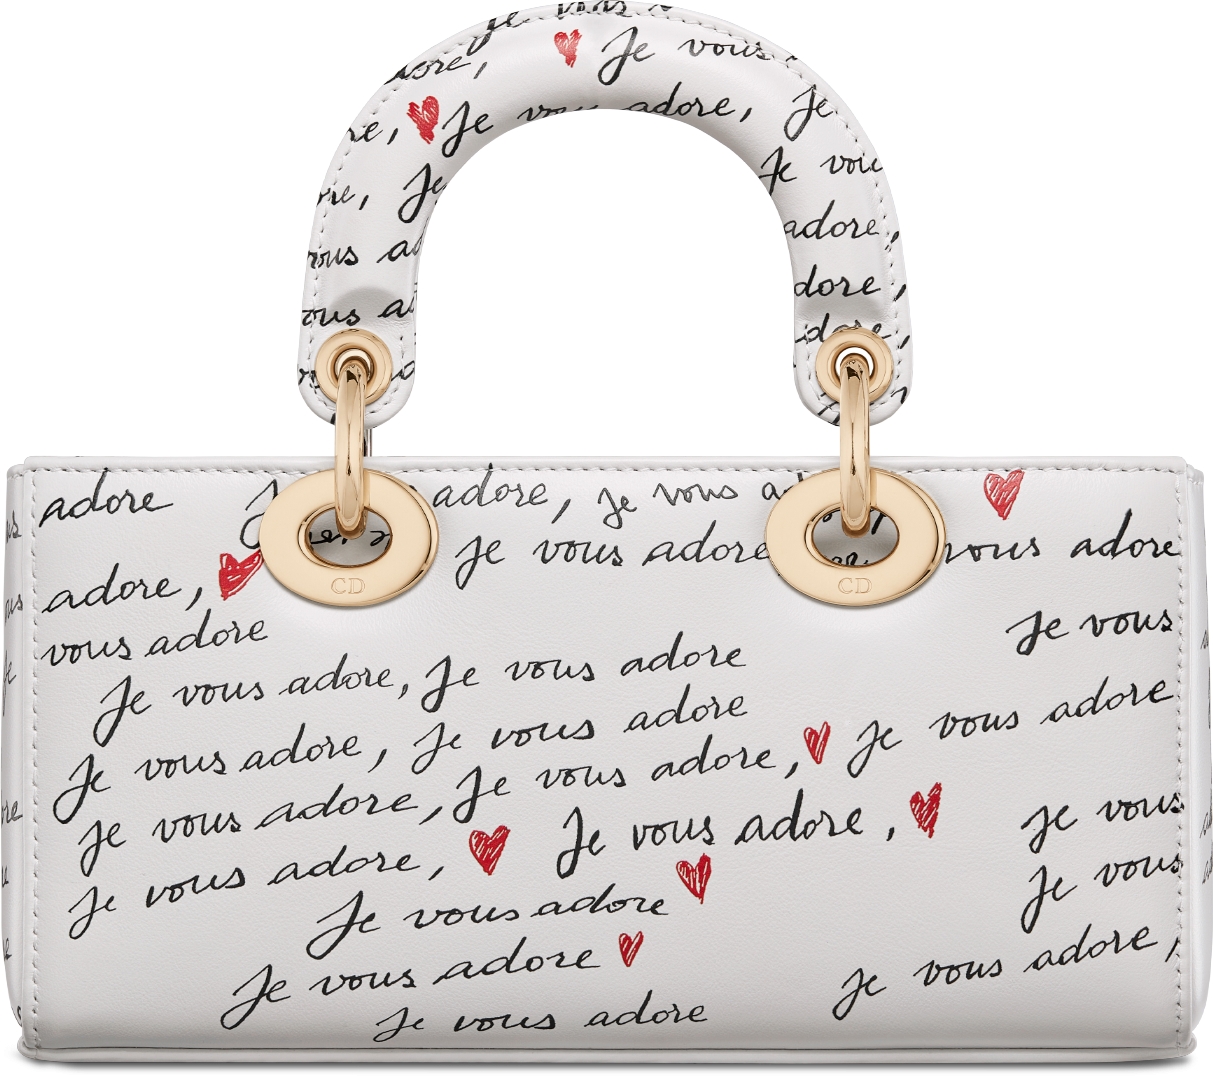 Je vous
Je vous
adore,
Je vous adore, Je
Je vous
Je
adore,
vous
dore,
vous
adore,
adore
adore, Je vous
Je vous adore
vous adore
adore,
CD
CD
vous adore
Je vous
Je vous adore, Je vous adore
Je vous adore, Je vous adore
Je vous adore
Je vous adore, Je vous adore,
Je vous adore, Je vous adore,
Je vous
Je vous
Je vous adore
Je vous adore
Je vous adore,
Je vous adore